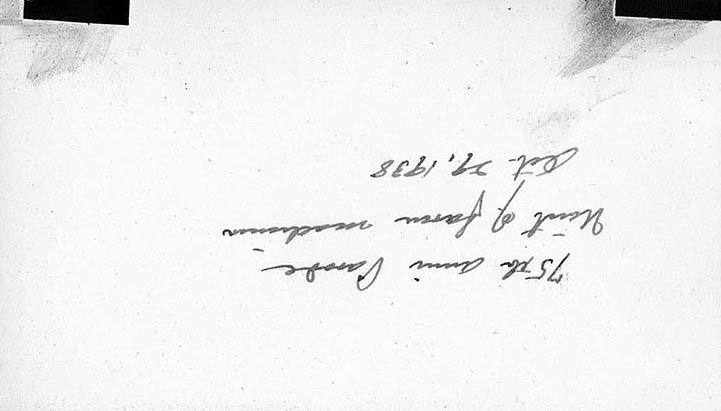 75th anni Parade
Unit of farm machinery
Oct. 29, 1938